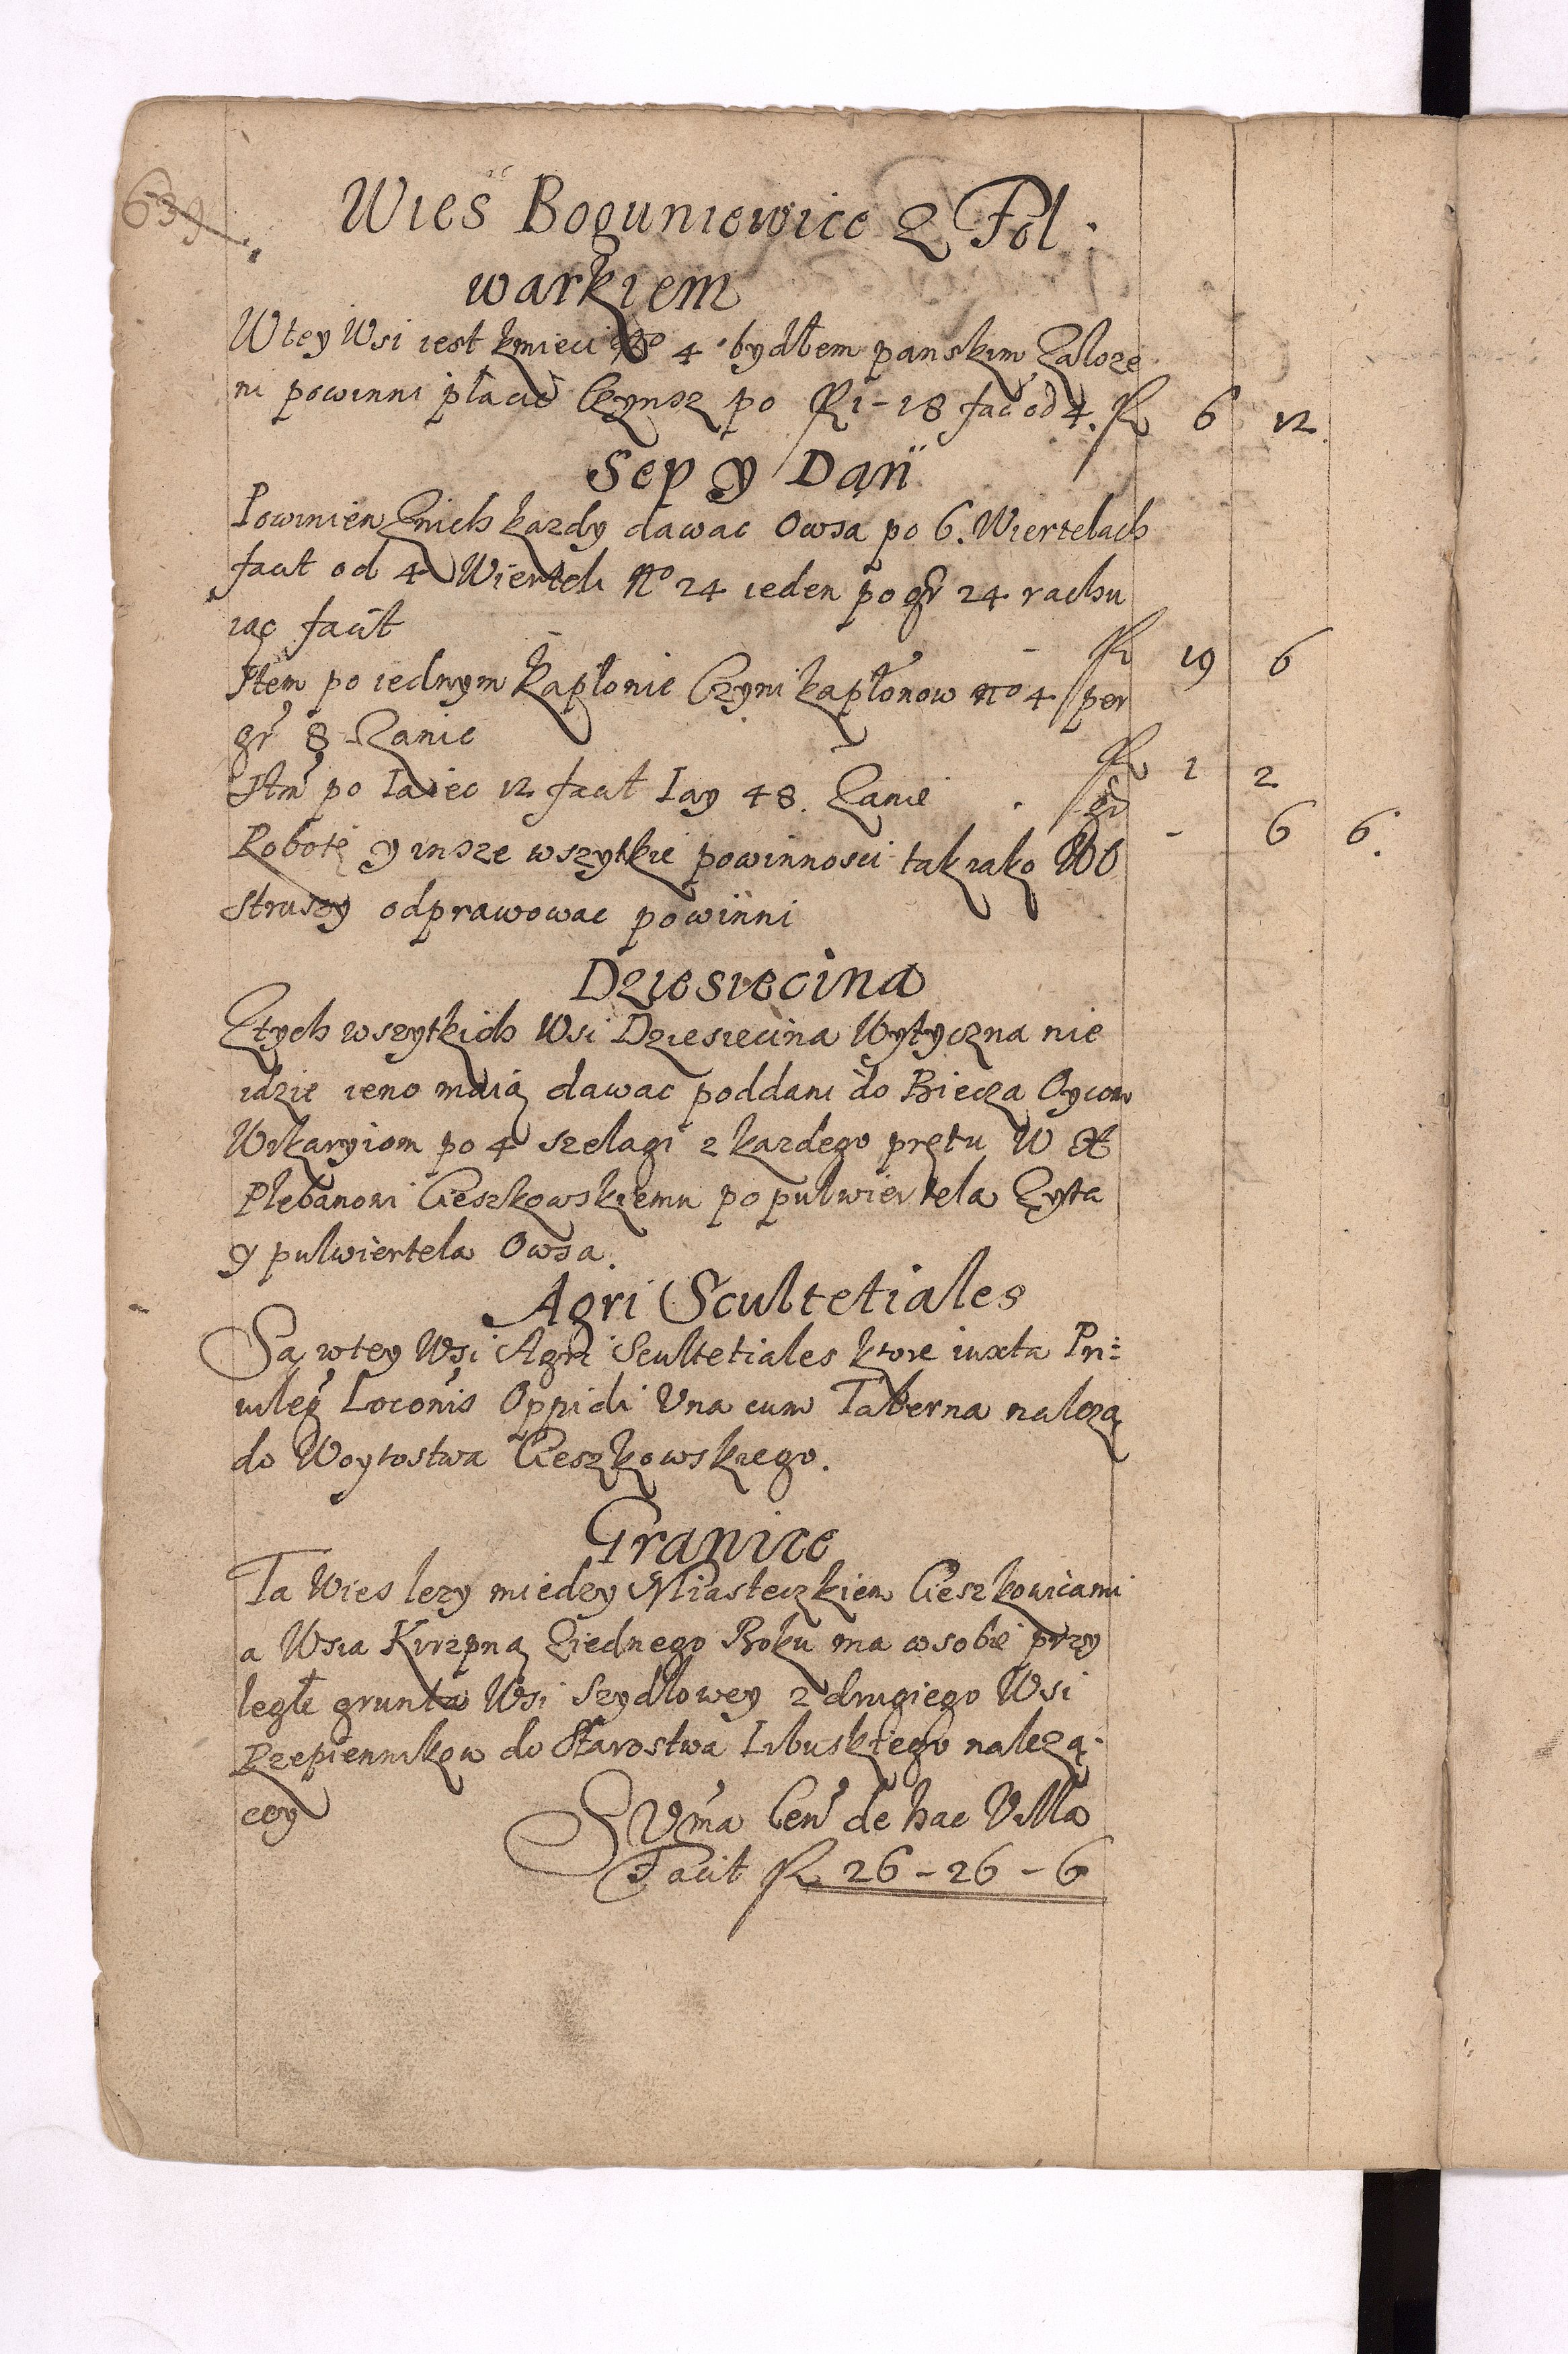 639
Wies Boguniewice z Fol
warkiem
W tey Wsi iest kmieci No 4 bydłem panskim Zaloze
ni powinni płacic Czynsz po fl 1 - 18 fac od 4. fl 6 12
Sep y Dan
Powinien Znich kazdy dawac Owsa po 6. Wiertelach
facit od 4 Wierteli No 24 ieden po gr 24 rachu
iąc facit - fl 19 6
Item po iednym Kapłonie Czyni kapłonow no 4 per
gr 8 Zanie fl 1 2
Itm po Iaiec 12 facit Iay 48. Zanie . gr - 6 6.
Robotę y insze wszytkie powinnosci tak iako Wo
struszy odprawowac powinni
Dziesiecina
Ztych wszytkich Wsi Dziesiecina Wytyczna nie
idzie ieno maią dawac poddani do Biecza Oycom
Wikaryiom po 4 szelagi z kazdego prętu W X
Plebanowi Cieszkowskiemu po pulwiertela Zyta
y pulwiertela Owsa.
Agri Scultetiales
Są wtey Wsi Agri Scultetiales ktore iuxta Pri
uileg Loconis Oppidi Vna cum Taberna nalezą
do Woytostwa Cieszkowskiego.
Granice
Ta Wies lezy miedzy Miasteczkiem Cieszkowicami
a Wsia Kirzpną Ziednego Boku ma wsobie przy
ległe grunta Wsi Szydłowey z drugiego Wsi
Rzepiennikow do Starostwa Libuskiego nalezą
cey
SVma Cen de hac Villa
Facit fl 26 - 26 - 6